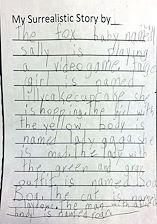 My Surrealistic Story by_
The fox baby named
Sally is playing
a videogame. The
girl is named
cakecupcake. She
is hopping. the girl with
the yellow body is
named lady gaga she
is mad. the lady with
the green and gray
outfit is named
Bob. the cat is
the man with
body is named roan